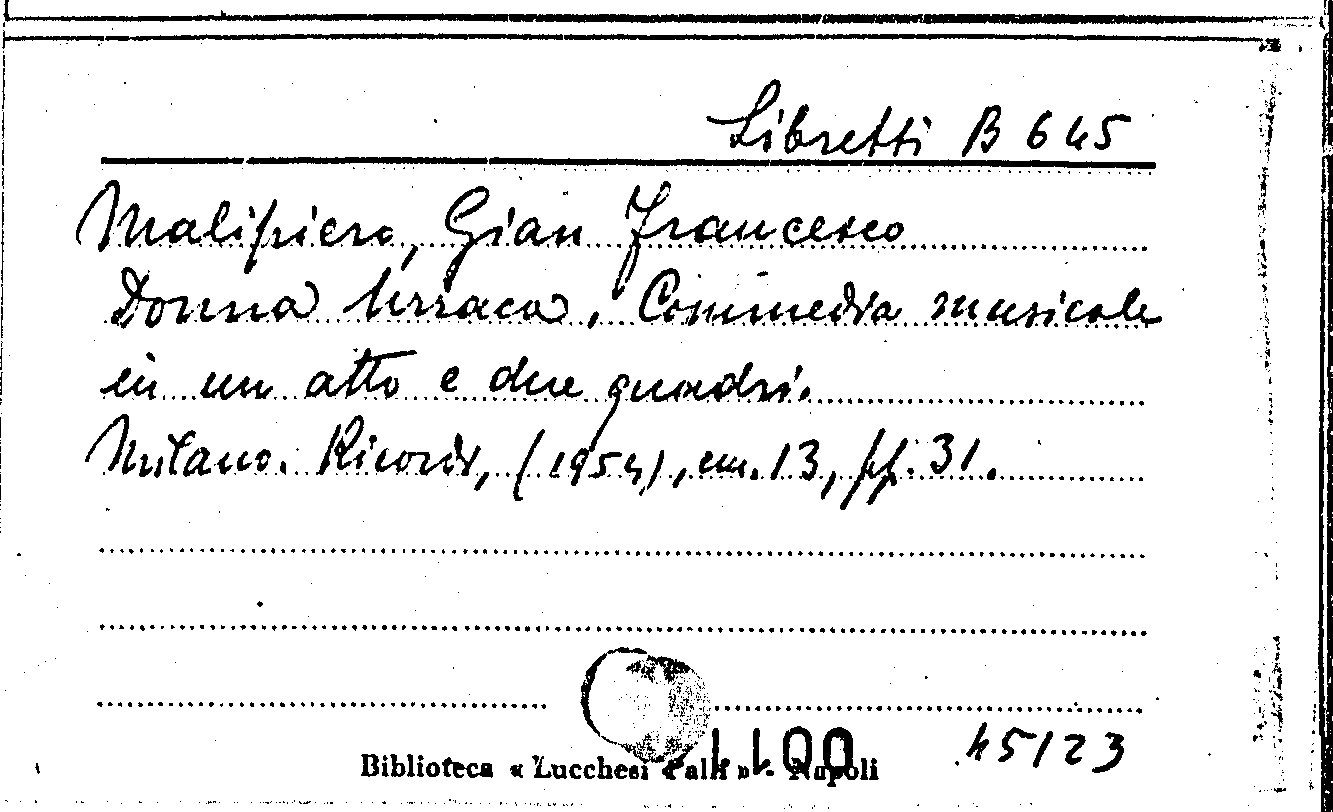 Libretti B 645
Malipiero, Gian Francesco
Donna Urraca. Commedia musicale
in un atto e due quadri.
Milano. Ricordi, (1954), cm. 13, pp. 31.
1100
45123
Biblioteca « Lucchesi Palli » - Napoli